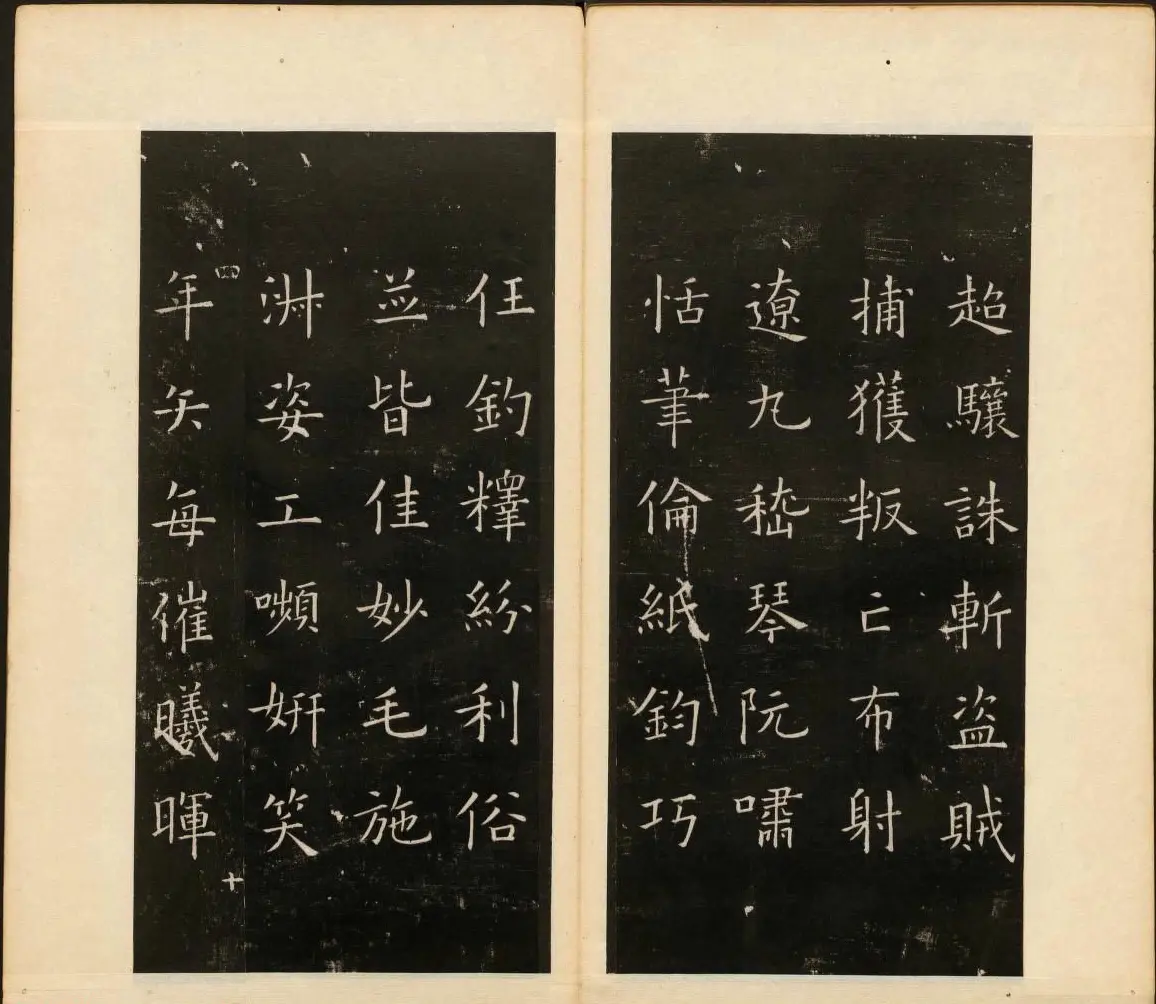 超驤誅斬盜賊
捕獲叛亡布射
遼丸嵇琴阮嘯
恬筆倫紙鈞巧
任釣釋紛利俗
並皆佳妙毛施
淋姿工嚬妍笑
年矢每催曦暉